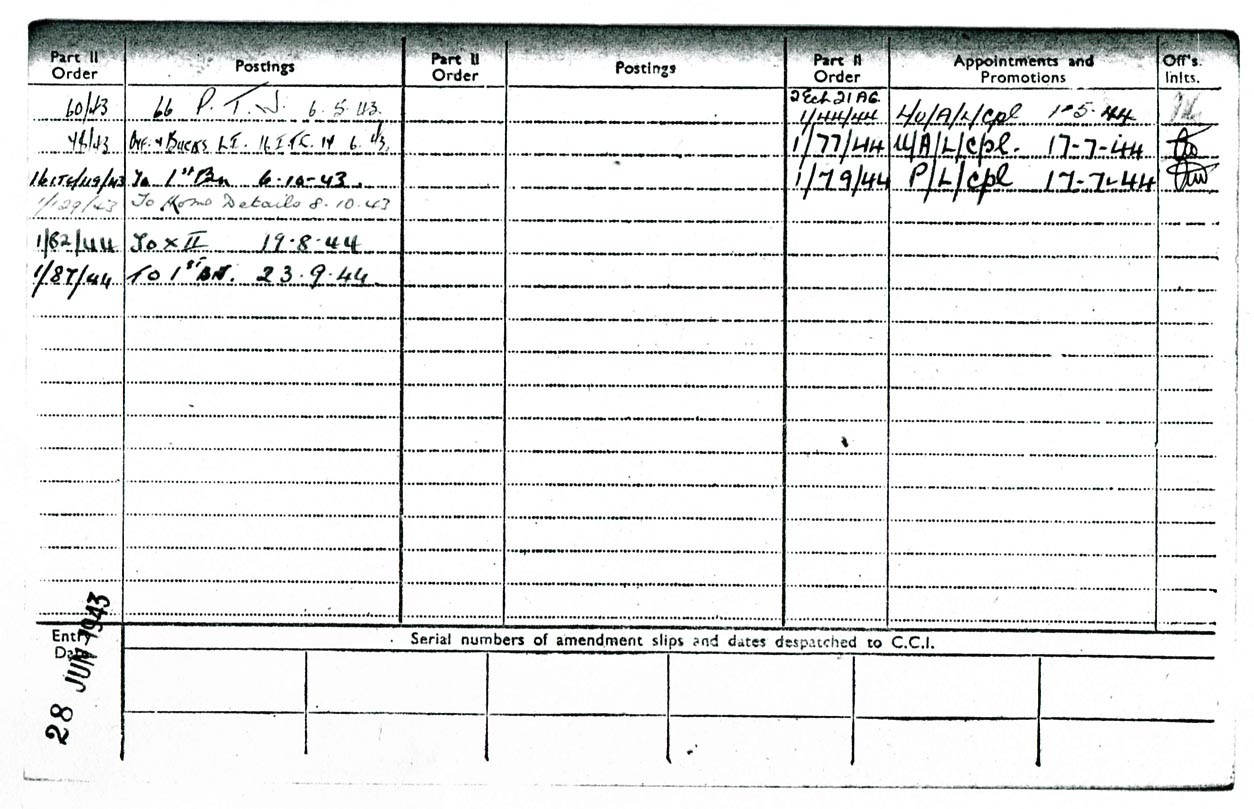 Part II Order Postings Part II Order Postings Part II Order Appointments and Promotions Off's. Inits.
2 Ech 21 AG
60/43 66 P. T. W. 6.5.43. 1/44/44 U/A/L/Cpl 1-5-44
44/43 Oxf. & Bucks L.I. 16 I.T.C. 17 6. 43. 1/77/44 U/A/L/cpl. 17-7-44
16 ITC/119/43 To 1st Bn 6-10-43. 1/79/44 P/L/cpl 17-7-44
1/129/43 To Home Details 8.10.43
1/82/44 To X II 19-8-44
1/87/44 TO 1st BN. 23.9.44.
Entry Date Serial numbers of amendment slips and dates despatched to C.C.I.
28 JUN 1943